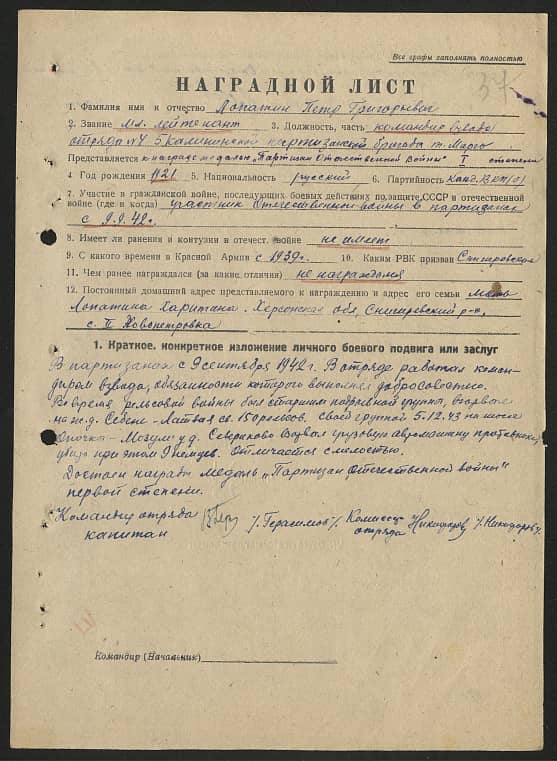 Все графы заполнять полностью
37
НАГРАДНОЙ ЛИСТ
1. Фамилия имя и отчество Лопатин Петр Григорьевич
2. Звание мл. лейтенант 3. Должность, часть командир взвода
отряда №4 5 Калининской партизанской бригады т. Марго
Представляется к награде медалью „Партизан Отечественной войны" I степени
4. Год рождения 1921 5. Национальность русский 6. Партийность Канд. ВКП(б)
7. Участие в гражданской войне, последующих боевых действиях по защите СССР и отечественной
войне (где и когда) участник Отечественной войны в партизанах
с 9.9.42г.
8. Имеет ли ранения и контузии в отечест. войне не имеет
9. С какого времени в Красной Армии с 1939г. 10. Каким РВК призван Снигиревским
11. Чем ранее награждался (за какие отличия) не награждался
12. Постоянный домашний адрес представляемого к награждению и адрес его семьи Мать
Лопатина Харитина. Херсонская обл, Снигиревский р-н,
с. II Новопетровка
1. Краткое, конкретное изложение личного боевого подвига или заслуг
В партизанах с 9 сентября 1942г. В отряде работал коман-
диром взвода, обязанности которого выполнял добросовестно.
Во время рельсовой войны был старшим подрывной группы, взорвал
на ж.д. Себеж - Латвия св. 150 рельсов. Своей группой 5.12.43 на шоссе
Опочка - Мозули у д. взорвал грузовую автомашину противника,
убито при этом 9 немцев. Отличается смелостью.
Достоин награды медаль „Партизан Отечественной войны"
первой степени.
Командир отряда /Герасимов/ Комиссар /Никифоров/
капитан отряда
Командир (Начальник)